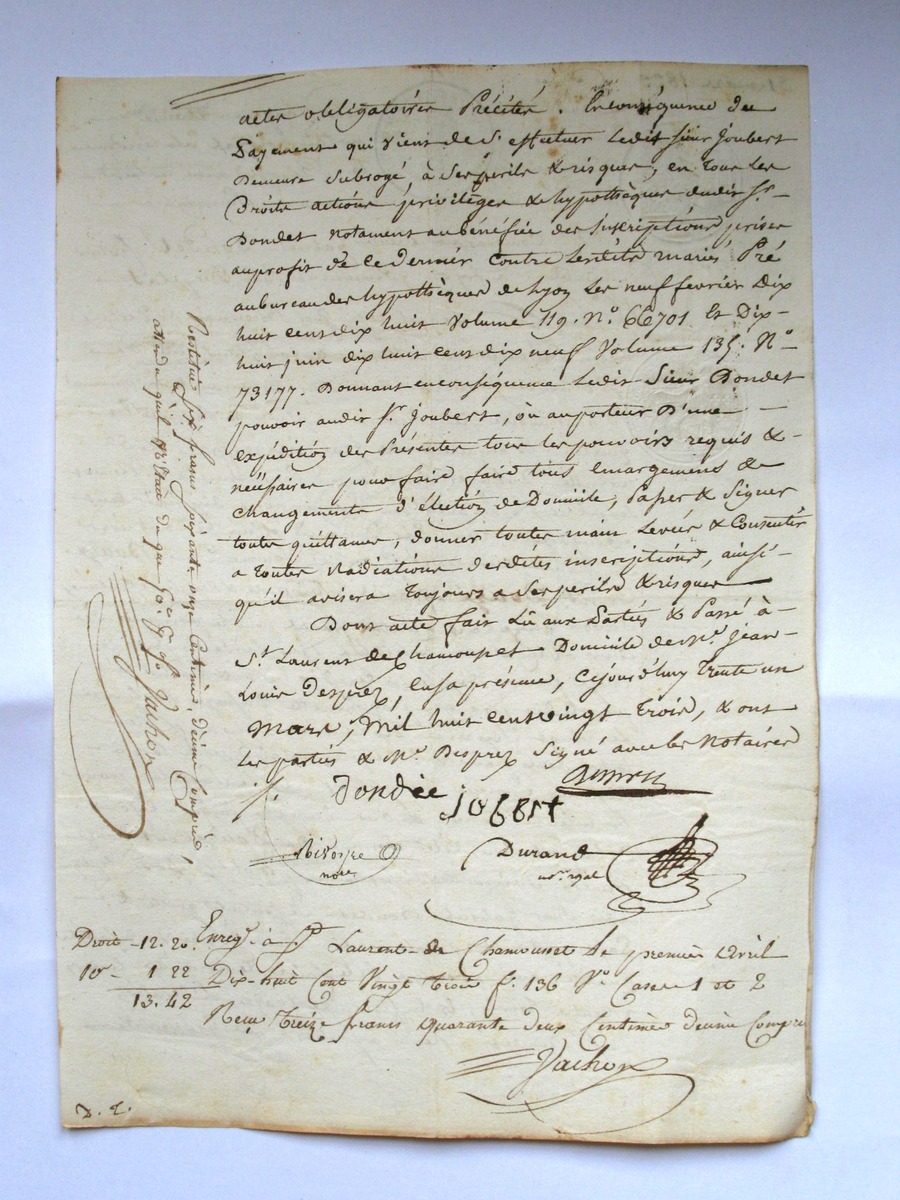 actes obligatoires Précités. En conséquence du
Payement qui vient de S'effectuer Ledit Sieur Joubert
Demeure Subrogé, à Ses perils & risques, en tous Les
Droits actions privilèges & hypothèques dudit Sr.
Dondet notament au bénéfice des Inscriptions prises
au profit de ce dernier contre Lesdits mariés Pré
au bureau des hypothèques de Lyon Les neuf fevrier Dix
huit cent dix huit Volume 119. N°. 66701 Et Dix-
huit juin dix huit cent dix neuf Volume 135. N°
73177. Donnant en conséquence Ledit Sieur Dondet
pouvoir audit Sr. Joubert, ou au porteur D'une
expédition des Présentes tous les pouvoirs requis &
néssaires pour faire faire tous Emargemens &
changements d'élection de Domicile, Passer & Signer
toute quittance, donner toutes main Levées & Consentir
a toutes Radiations desdites inscriptions, ainsi
qu'il avisera toujours a Ses perils & risques
Dont acte fait Lû aux Parties & Passé à
St. Laurent de Chamousset Domicile de Mr. Jean-
Louis Desprez, En sa présence, Cejourd'huy trente un
Mars, Mil huit cent vingt trois, & ont
Les parties & Mr. Desprez Signé avec les Notaires
dondée
joubert
Durand
nore
nore. royal
Droit - 12. 20.
10e - 1 22
13. 42
Enregé. à St Laurent-de Chamousset le premier Avril
Dix-huit Cent Vingt trois f. 136 Vo. Cases 1 et 2
Reçu treize francs quarante deux Centimes decime Compris
Vachon
D. L.
Restitué Six francs soixante onze Centimes, décime Compris,
attendu qu'il n'Etait du que
Vachon